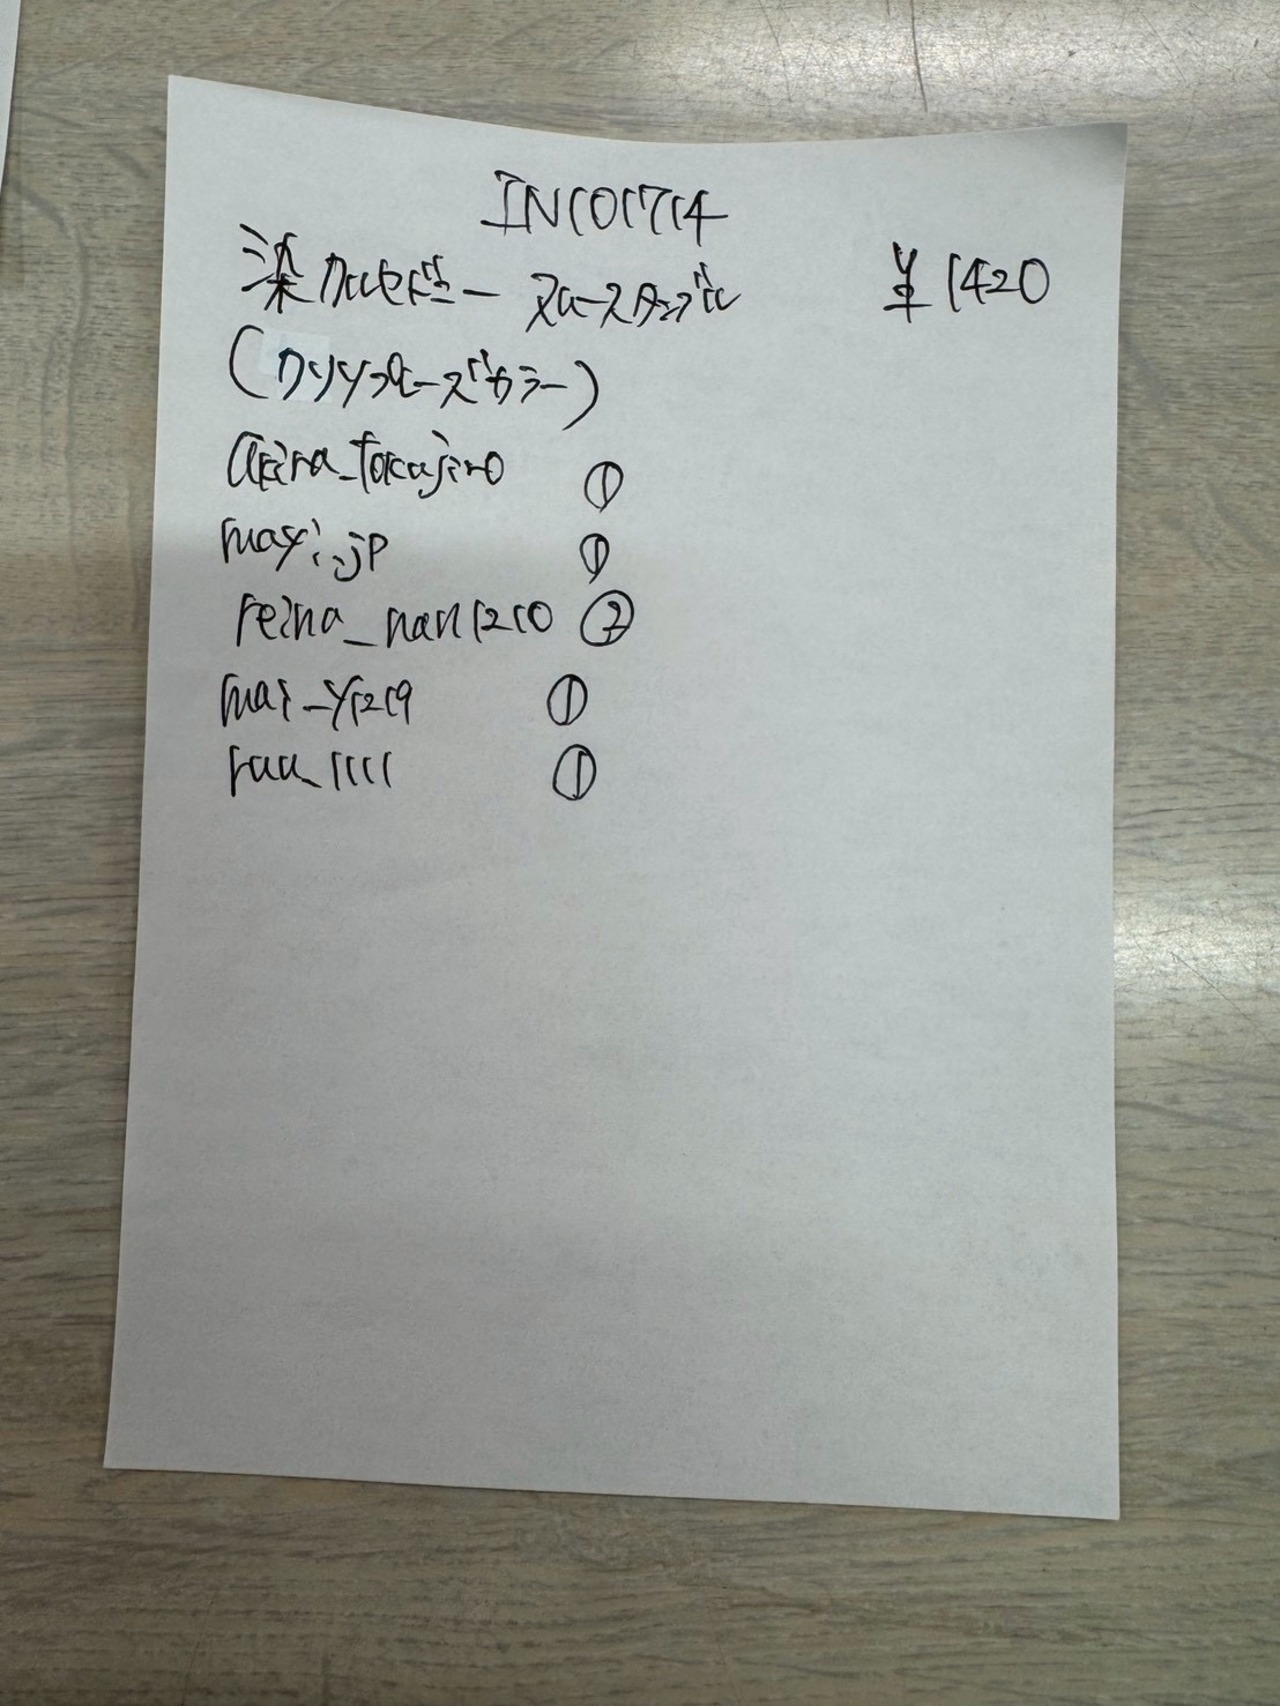 IN101714
染カルセドニー ヌルースタッズ ¥1420
(クリソプレーズカラー)
akira_takajiro ①
mayi.jp ①
reina_nan1210 ②
mai_y1219 ①
raa_1111 ①